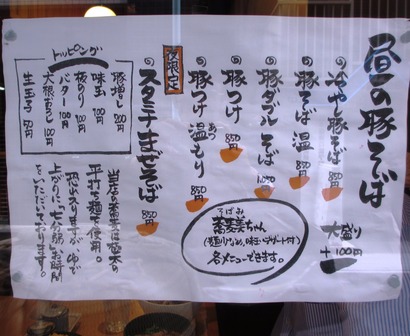 昼の豚そば
の冷やし豚そば 850円
の豚そば 温 850円
の豚ダブルそば 1,050円
の豚つけ 850円
の豚つけ 温もり 850円
あつ
夜限定
のスタミナまぜそば 850円
大盛り
+100円
そばみ
蕎麦ちゃん
各メニューできます。
トッピング
豚増し 200円
味玉 100円
板のり 100円
バター 100円
大根おろし 100円
生玉子 50円
当店の蕎麦は極太の
平打ち麺を使用。
恐れ入りますが、ゆで
上がりに、七分弱のお時間
をいただいております。